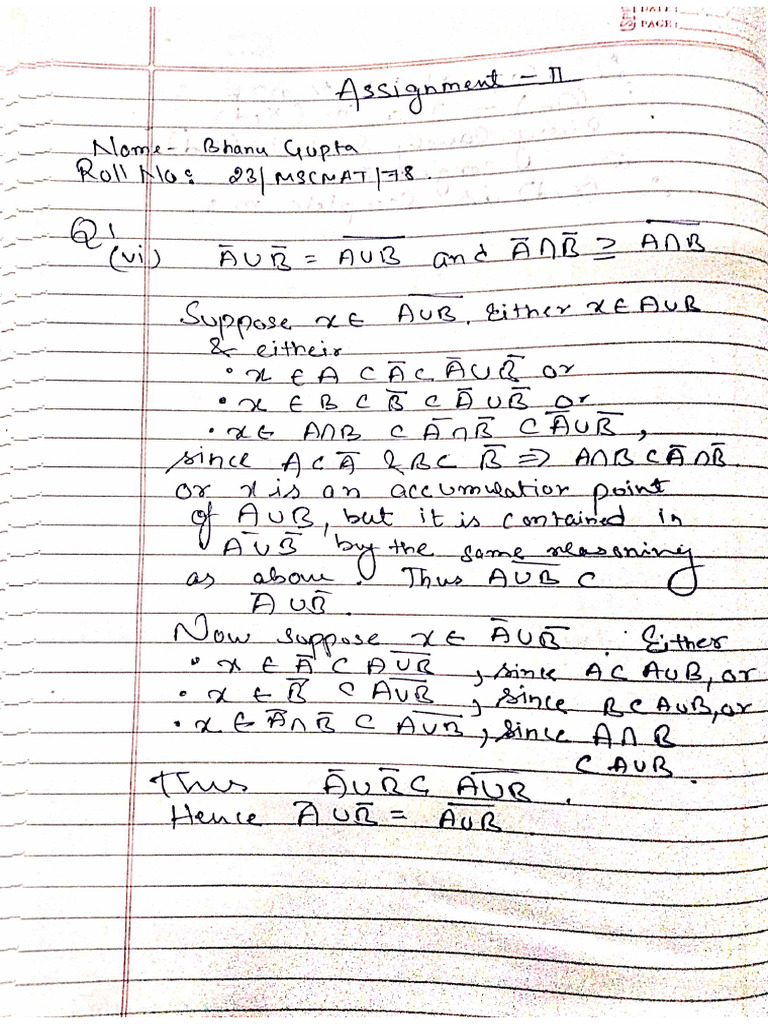 DATE:
PAGE:
Assignment - II
Name- Bhanu Gupta
Roll No: 23/MSCMAT/78.
Q1
(vi) A̅∪B̅ = \overline{A∪B} and A̅∩B̅ ⊇ \overline{A∩B}
Suppose x∈ \overline{A∪B}. Either x∈A∪B
& eitheir
• x ∈ A ⊂ A̅ ⊂ A̅∪B̅ or
• x ∈ B ⊂ B̅ ⊂ A̅∪B̅ or
• x∈ A∩B ⊂ A̅∩B̅ ⊂ A̅∪B̅,
since A⊂A̅ & B⊂ B̅ ⇒ A∩B⊂A̅∩B̅.
or x is an accumulatior point
of A∪B, but it is contained in
A̅∪B̅ by the same reasoning
as above. Thus \overline{A∪B} ⊂
A̅∪B̅.
Now suppose x∈ A̅∪B̅. Either
• x ∈ A̅ ⊂ \overline{A∪B}, since A⊂ A∪B, or
• x ∈ B̅ ⊂ \overline{A∪B}, since B⊂A∪B, or
• x ∈ A̅∩B̅ ⊂ \overline{A∪B}, since A∩B
⊂ A∪B.
Thus A̅∪B̅ ⊆ \overline{A∪B}.
Hence A̅∪B̅ = \overline{A∪B}.